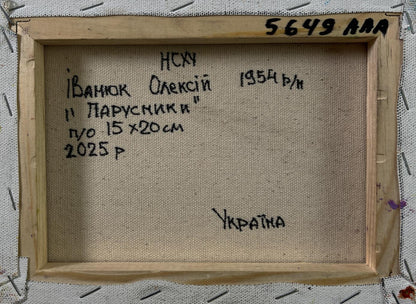 5649 AAA
НСХУ
іванюк Олексій 1954 р/н
"Парусники"
п/о 15х20см
2025 р
Україна